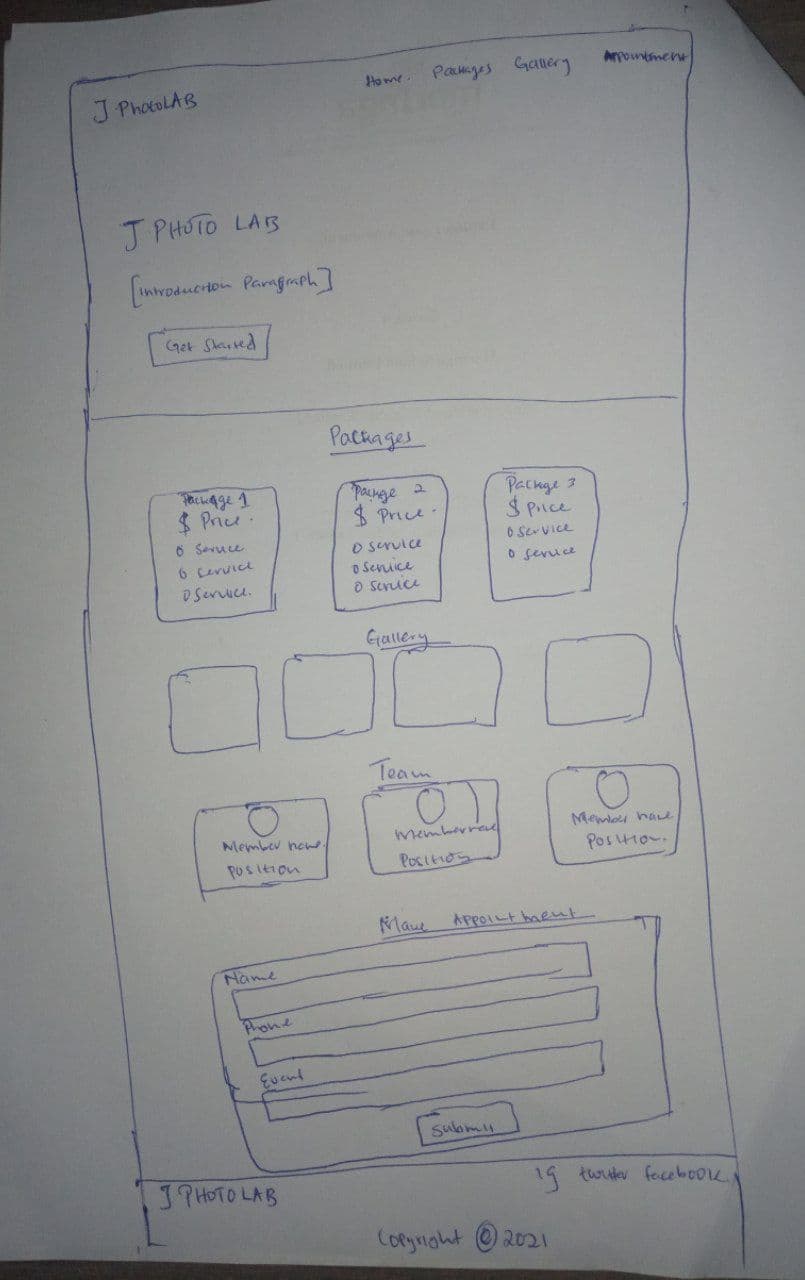 J PhotoLAB
Home. Packages Gallery Appointment
J PHOTO LAB
[Introduction Paragraph]
Get Started
Packages
Package 1
$ Price.
o Service
o Service
o Service.
Package 2
$ Price.
o Service
o Service
o Service
Package 3
$ Price
o Service
o Service
Gallery
Team
Member name
Position
Member name
Position
Member name
Position.
Make Appointment
Name
Phone
Event
Submit
J PHOTO LAB
ig twitter facebook
Copyright © 2021